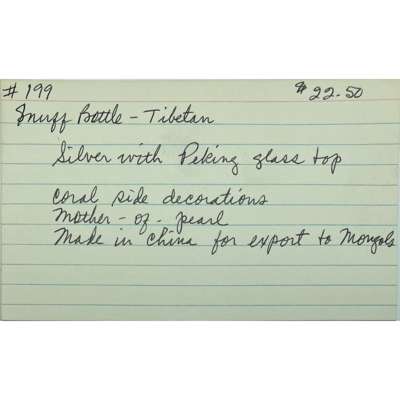 # 199 $ 22.50
Snuff Bottle - Tibetan
Silver with Peking glass top
coral side decorations
Mother - of - pearl
Made in China for export to Mongols